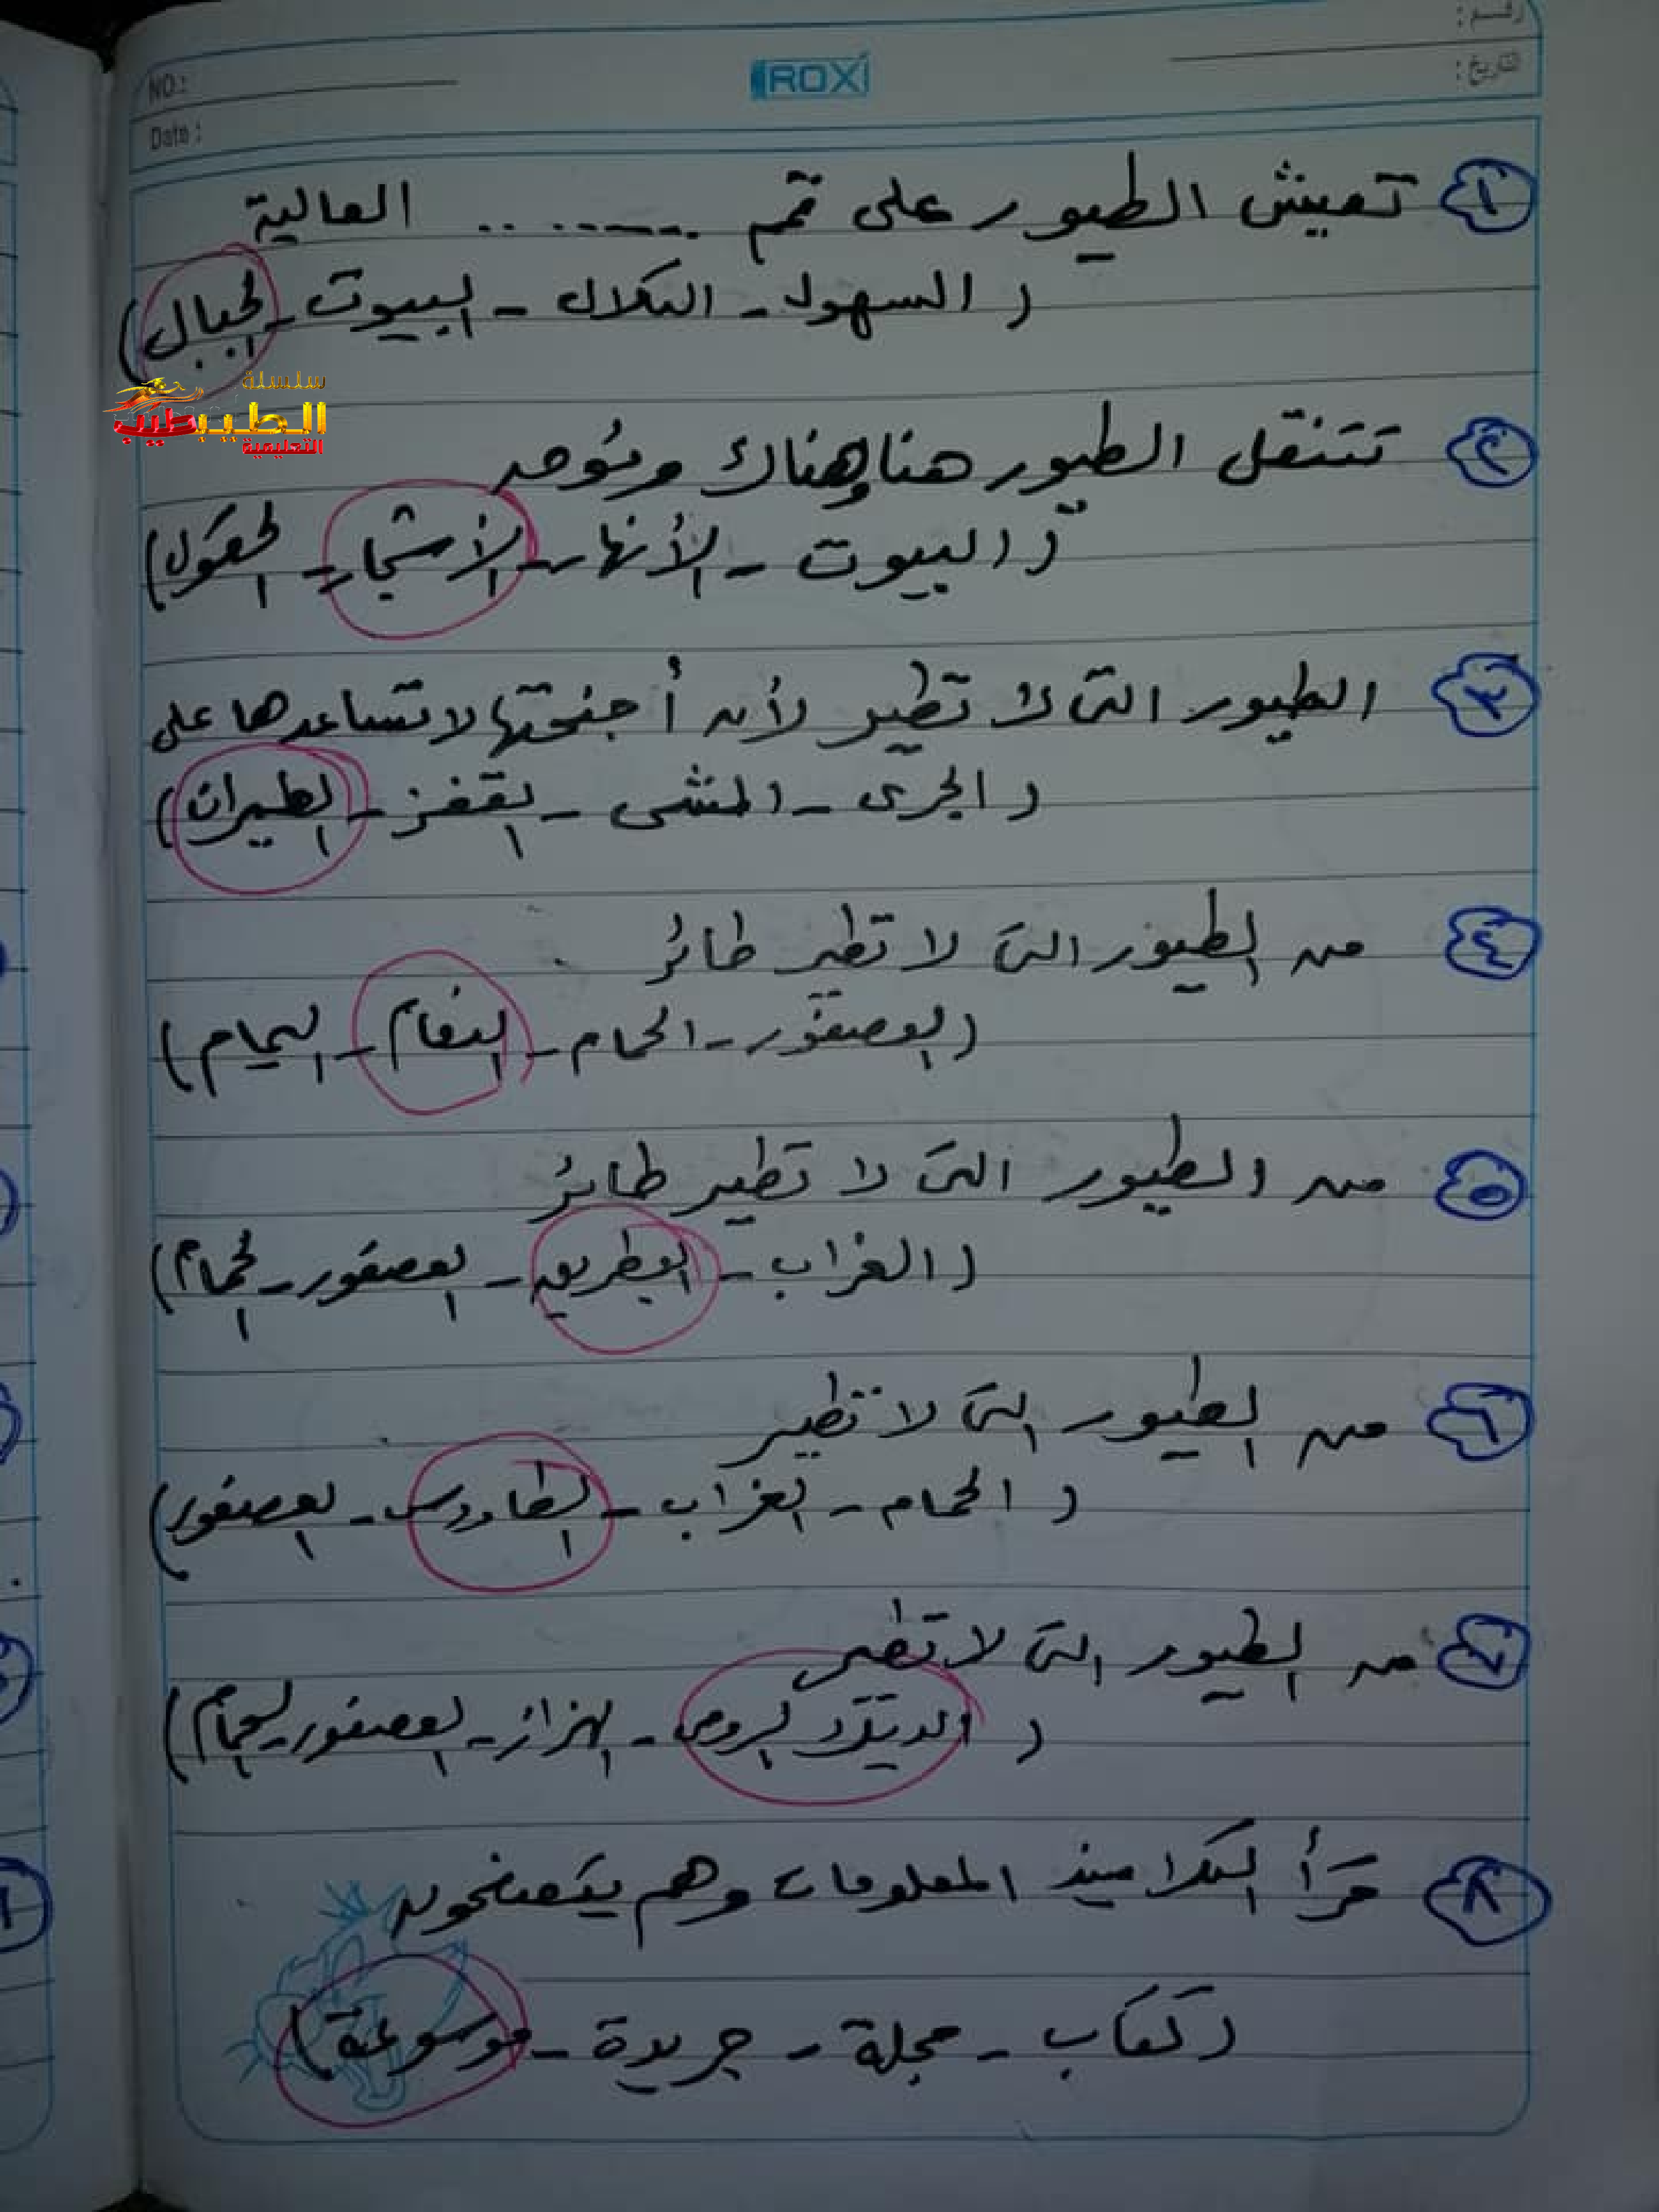 رقم:
NO.:
ROXI
التاريخ:
Date:
١ تعيش الطيور على قمم ........ العالية
( السهول - التلال - البيوت - الجبال )
سلسلة
الطيب طيب
التعليمية
٢ تتنقل الطيور هنا وهناك وفوق
( البيوت - الأنهار - الأشجار - الحقول )
٣ الطيور التى لا تطير لأن أجنحتها لا تساعدها على
( الجرى - المشى - القفز - الطيران )
٤ من الطيور التى لا تطير طائر
( العصفور - الحمام - النعام - اليمام )
٥ من الطيور التى لا تطير طائر
( الغراب - البطريق - العصفور - الحمام )
٦ من الطيور التى لا تطير
( الحمام - الغراب - الطاووس - العصفور )
٧ من الطيور التى لا تطير
( الديك الرومى - الهزاز - العصفور - الحمام )
٨ قرأ التلاميذ المعلومات وهم يتصفحون
( كتاب - مجلة - جريدة - موسوعة )